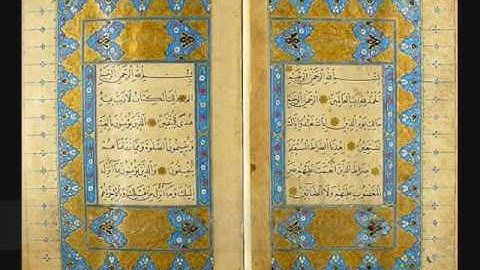 بسم الله الرحمن الرحيم
الحمد لله رب العالمين
الرحمن الرحيم مالك
يوم الدين اياك نعبد واياك
نستعين اهدنا الصراط المستقيم
صراط الذين انعمت عليهم غير
المغضوب عليهم ولا الضالين
بسم الله الرحمن الرحيم
الم ذلك الكتاب لا ريب فيه
هدى للمتقين الذين يؤمنون بالغيب
ويقيمون الصلوة ومما رزقناهم
ينفقون والذين يؤمنون بما انزل
اليك وما انزل من قبلك وبالاخرة